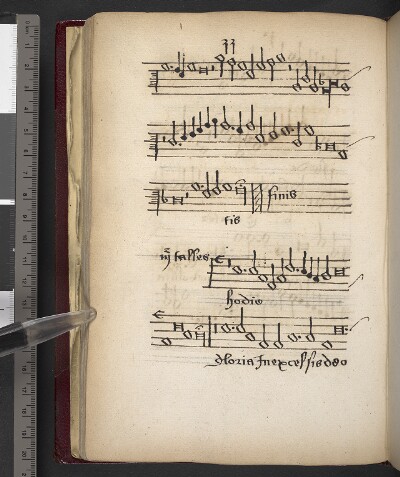 33
finis
tis
mr talles
hodie
gloria Inexcelsisdeo